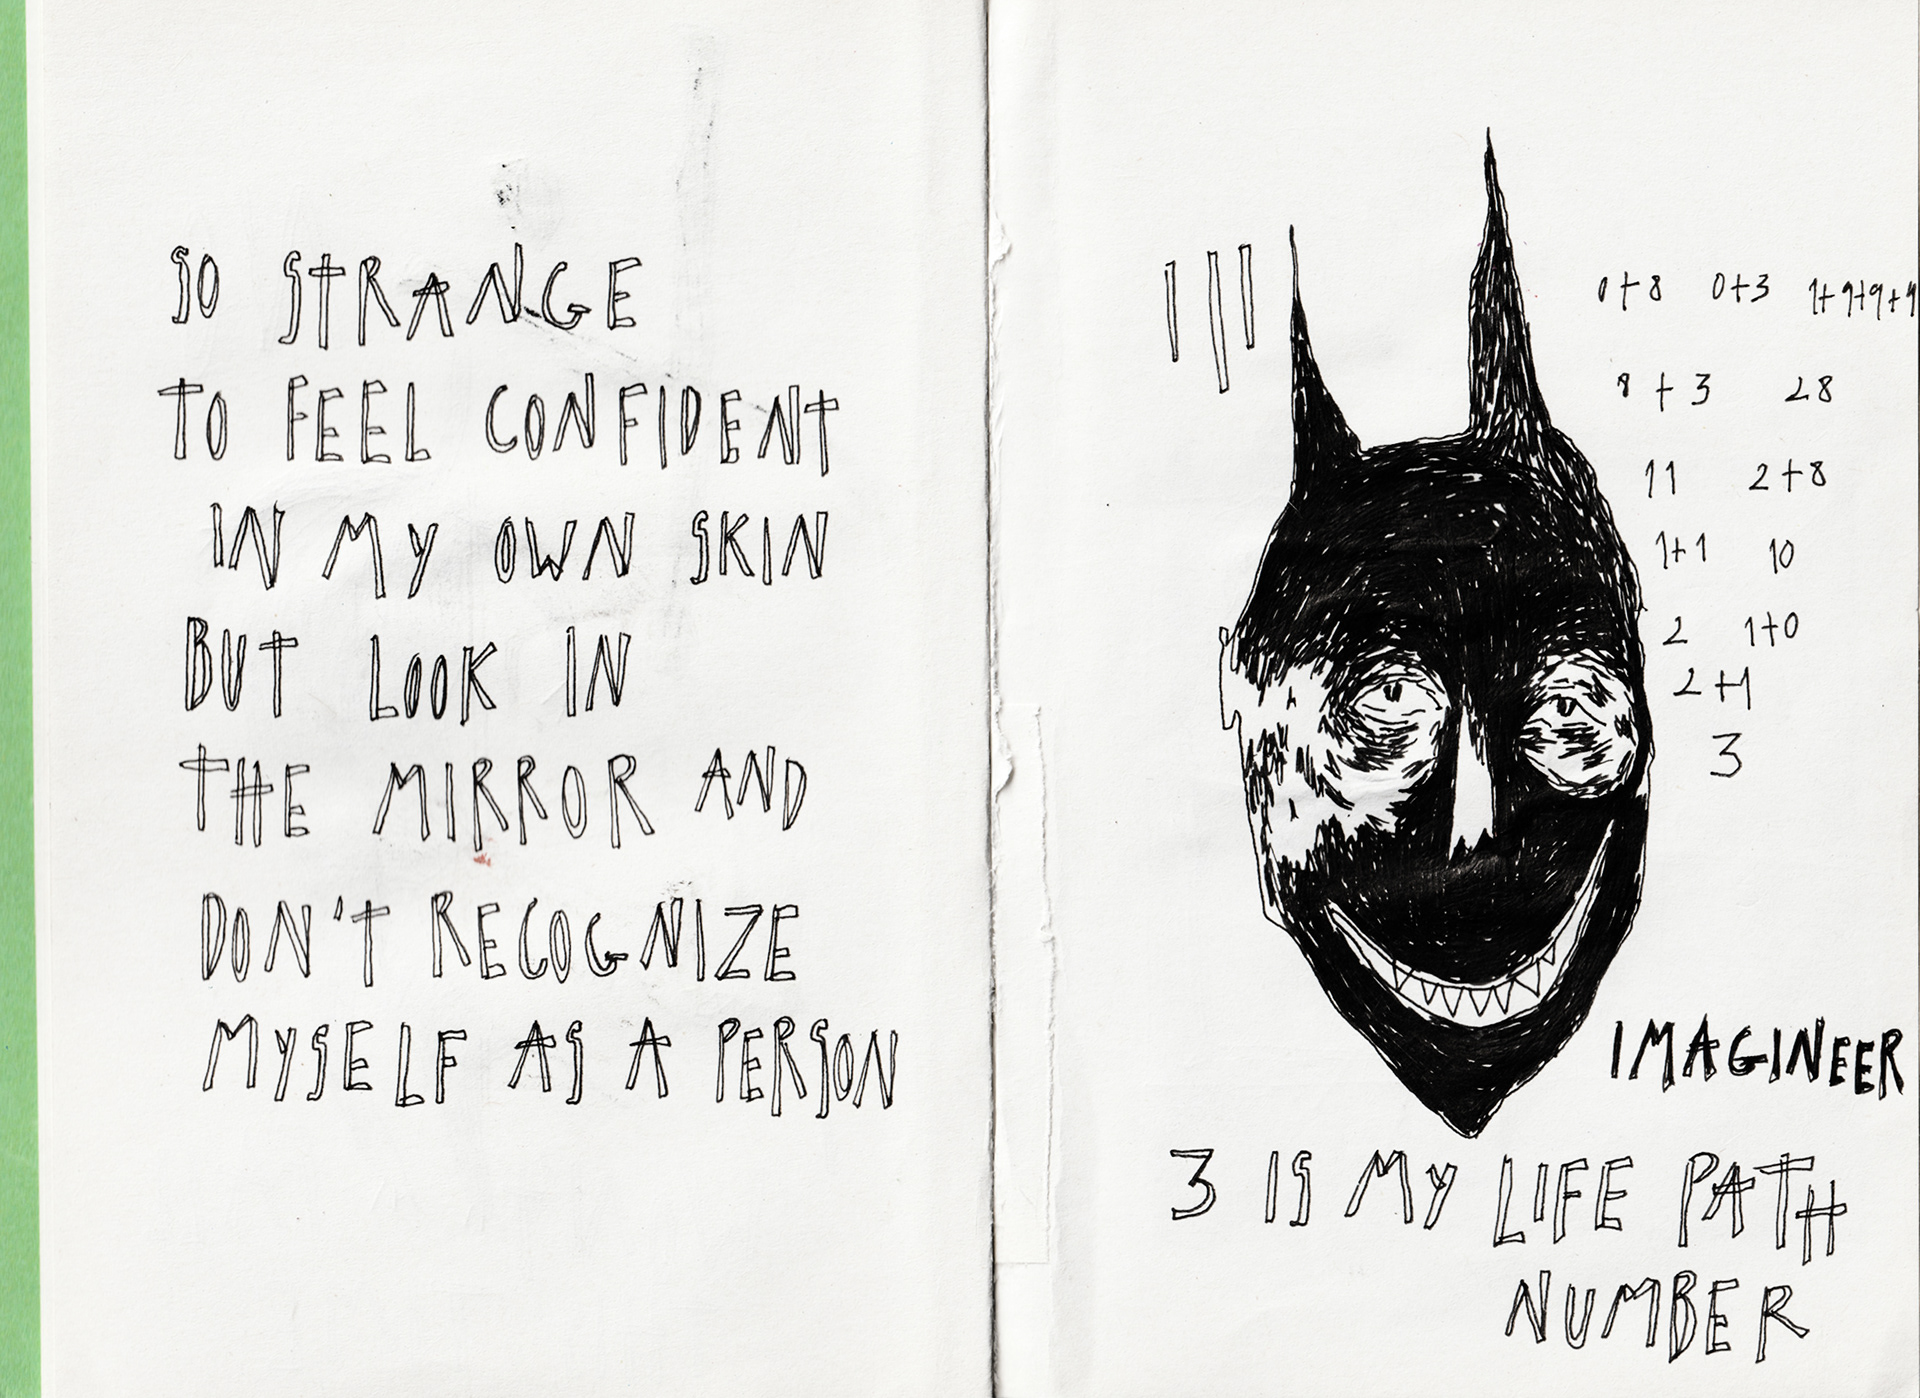 SO STRANGE
TO FEEL CONFIDENT
IN MY OWN SKIN
BUT LOOK IN
THE MIRROR AND
DON'T RECOGNIZE
MYSELF AS A PERSON
III
0+8 0+3 1+9+9+9
8+3 28
11 2+8
1+1 10
2 1+0
2+1
3
IMAGINEER
3 IS MY LIFE PATH
NUMBER